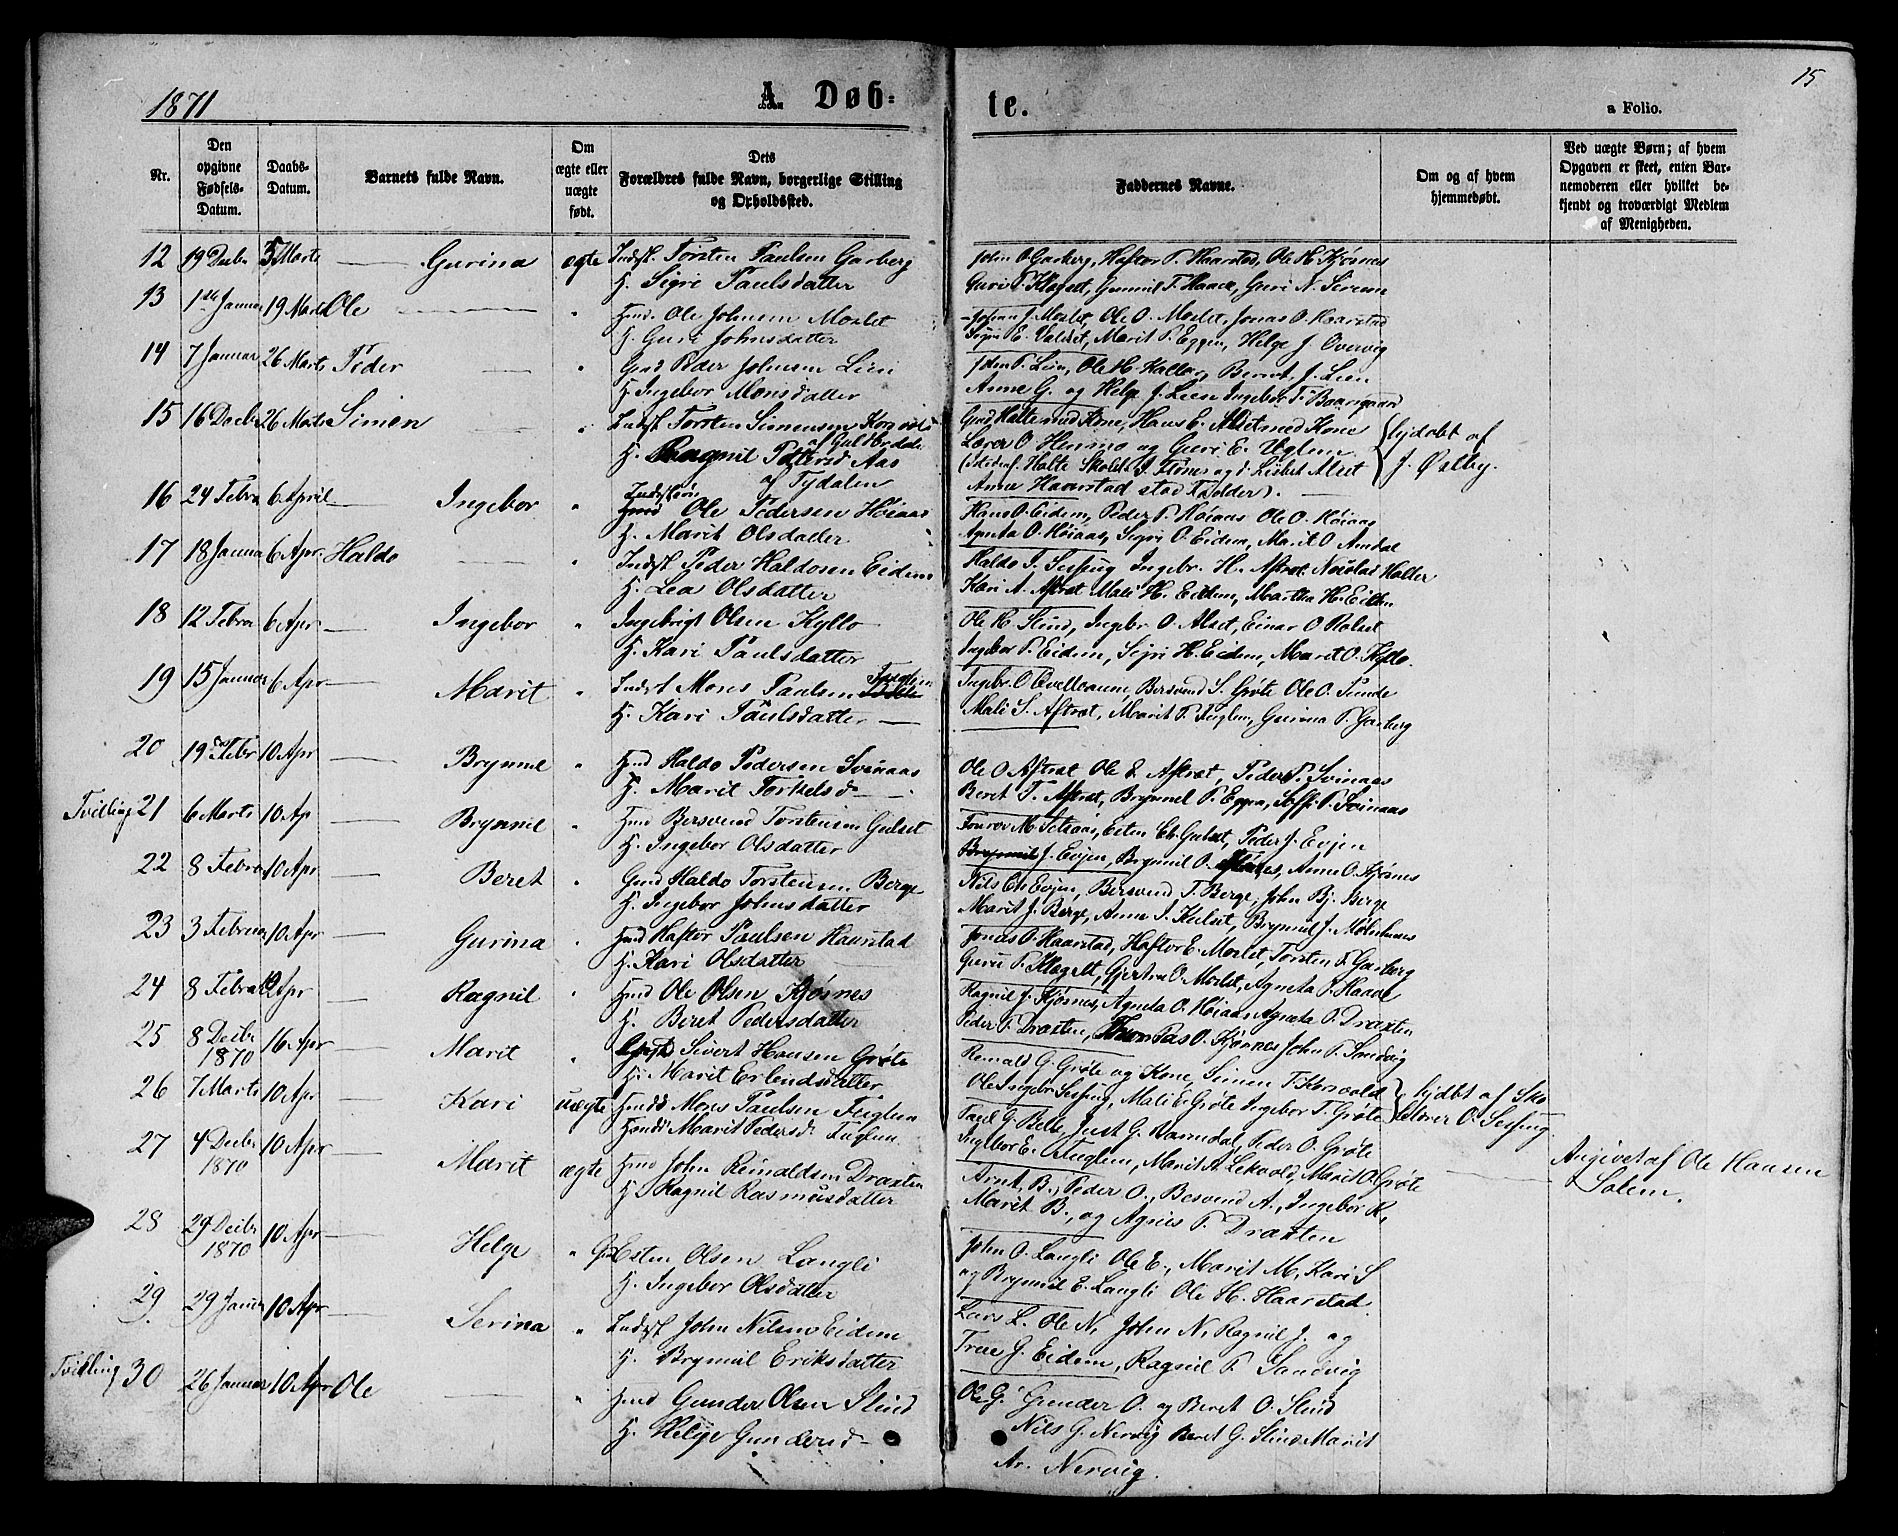 15
1871
A. Døb-
te.
a Folio.
Nr.
Den opgivne Fødsels-Datum.
Daabs-Datum.
Barnets fulde Navn.
Om ægte eller uægte født.
Dets Forældres fulde Navn, borgerlige Stilling og Opholdsted.
Faddernes Navne.
Om og af hvem hjemmedøbt.
Ved uægte Børn; af hvem Opgaven er skeet, enten Barnemoderen eller hvilket bekjendt og troværdigt Medlem af Menigheden.
12 19 Decbr 5 Marts Gurina ægte Indst. Torsten Paulsen Garberg
H. Sigri Paulsdatter
John O Garberg, Haftor P. Haarstad, Ole H. Kjösnes
Guri P. Klegset, Gunnil T. Haave, Guri N.
13 1ste Januar 19 Marts Ole Hmd. Ole Johnsen Moslet
H. Guri Johnsdatter
Johan J. Moslet, Ole O. Moslet, Jonas O. Haarstad
Sigri E. Valset, Marit P. Eggen, Helge J. Overvig
14 7 Januar 26 Marts Peder " Gmd Peder Johnsen Lien
H. Ingebor Monsdatter
John P. Lien, Ole H. Kallar, Bernt J. Lien
Anne G. og Helge J. Lien Ingebor T. Baargaard
15 16 Decbr 26 Marts Simon " Indst Torsten Simonsen Korsvold
af Guldbrdalen
H. Ragnil Pedersd Aas
af Tydalen
Gmd Halte med Kone, Hans E. Alset med Kone
Lærer O. Hemmo og Guri E. Uglem
(istedenf. Halte Skolel. J. Flönes og d. Lisbet Alset
Anne Haverstad stod Fadder).
hjdøbt af
J. Østby.
16 24 Febra 6 April Ingebor " Indstsön
Ole Pedersen Höiaas
H. Marit Olsdatter
Hans O. Eidem, Peder P. Höiaas Ole O. Höiaas
Agneta O. Höiaas, Sigri O. Eidem, Marit O Amdal
17 18 Janua 6 Apr. Haldo Indst Peder Haldosen Eidem
H. Lea Olsdatter
Haldo J. Sesseng Ingebr. H. Aftret Nikolai Halter
Kari A. Aftret Mali H. Eidem, Martha H. Eidem
18 12 Febra 6 Apr Ingebor " Ingebrigt Olsen Kyllo
H. Kari Paulsdatter
Ole H Slind, Ingebr O. Alset, Einar O Rolset
Ingebor P. Eidem, Sigri H. Eidem, Marit O. Kyllo.
19 15 Januar 6 Apr Marit " Indst Mons Paulsen Fuglem
H. Kari Paulsdatter
Ingebr. O Qvelloaune, Bersvend S. Gröte Ole O. Sunde
Mali S. Aftret, Marit P. Fuglem, Gurina P. Garberg
20 19de Febr 10 Apr Brynnil " Hmd Haldo Pedersen Svinaas
H. Marit Torkelsd
Ole O Aftret Ole E. Aftret, Peder P. Svinaas
Beret T. Aftret, Brynnil P. Eggen, Soffi P. Svinaas
Tvilling 21 6 Marts 10 Ap Brynnil " Hmd Bersvend Torstensen Gulset
H. Ingebor Olsdatter
M. Selaas, Esten Ch. Gulset, Peder J. Evjen
J. Evjen, Brynnil O. Flönes, Anne O. Kjösnes
22 8 Febra 10 Apr Beret " Gmd Haldo Torstensen Berge
H. Ingebor Johnsdatter
Nils Ch Evjen, Bersvend T. Berge, John Bj. Berge
Marit J. Berge, Anne J. Kulset, Brynnil J. Möienhus
23 3 Februa 10 Apr Gurina " Hmd Haftor Paulsen Haarstad
H. Kari Olsdatter
Jonas O. Haarstad, Haftor E. Moslet, Torsten P. Garberg
Guru P. Klegset, Gjertru O. Moslet, Agneta P. Haave
24 8 Febra 10 Apr Ragnil " Hmd Ole Olsen Kjösnes
H. Beret Pedersdatter
Ragnil J. Kjösnes, Agneta O. Höiaas Agneta P. Draxten
Peder P. Draxten, Thomas O. Kjösnes John P. Sandvig
25 8 Decbr 1870 16 Apr Marit " Sivert Hansen Gröte
H. Marit Erlendsdatter
Reinald G. Gröte og Kone, Simen T. Korsvold
Ole Ingebr Sesseng, Mali E. Gröte Ingebor T. Gröte
hjdøbt af Sko
lelærer O. Sesseng
26 7 Marts 10 Apr Kari uægte Mons Paulsen Fuglem
Marit Pedersd Fuglem
Paul G. Belle, Just G. Varmdal, Peder O. Gröte
Ingebor E. Fuglem, Marit A. Lekvold, Marit O. Gröte
Angivet af Ole Hansen
Solem.
27 4 Decbr 1870 10 Apr Marit ægte Hmd John Reinaldsen Draxten
H. Ragnil Rasmusdatter
Arnt B., Peder O., Besvend A., Ingebor K,
Marit B., og Agnes P. Draxten
28 29 Decbr 1870 10 Apr Helge " Gmd Esten Olsen Langli
H. Ingebor Olsdatter
John O. Langli Ole E., Marit M, Kari S
og Brynnil E. Langli Ole H. Haarstad.
29. 29 Januar 10 Apr Serina " Indst John Nilsen Eidem
H. Brynnil Eriksdatter
Lars L. Ole N, John N, Ragnil J. og
J. Eidem, Ragnil P. Sandvig
Tvilling 30 26 Januar 10 Apr Ole " Hmd Gunder Olsen Slind
H. Helge Gundersd
Ole G. Gunder O. og Beret O. Slind
Nils G. Nervig Beret G. Slind Marit
Ar. Nervig.